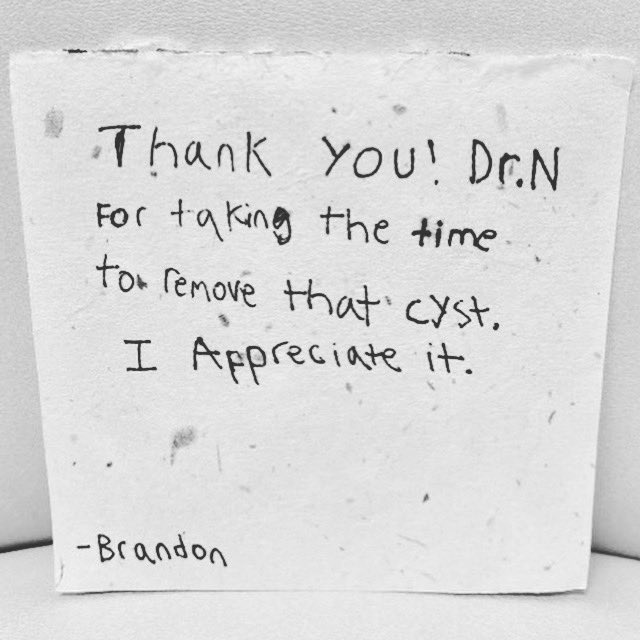 Thank YOU! Dr.N
For taking the time
to remove that cyst.
I Appreciate it.
-Brandon